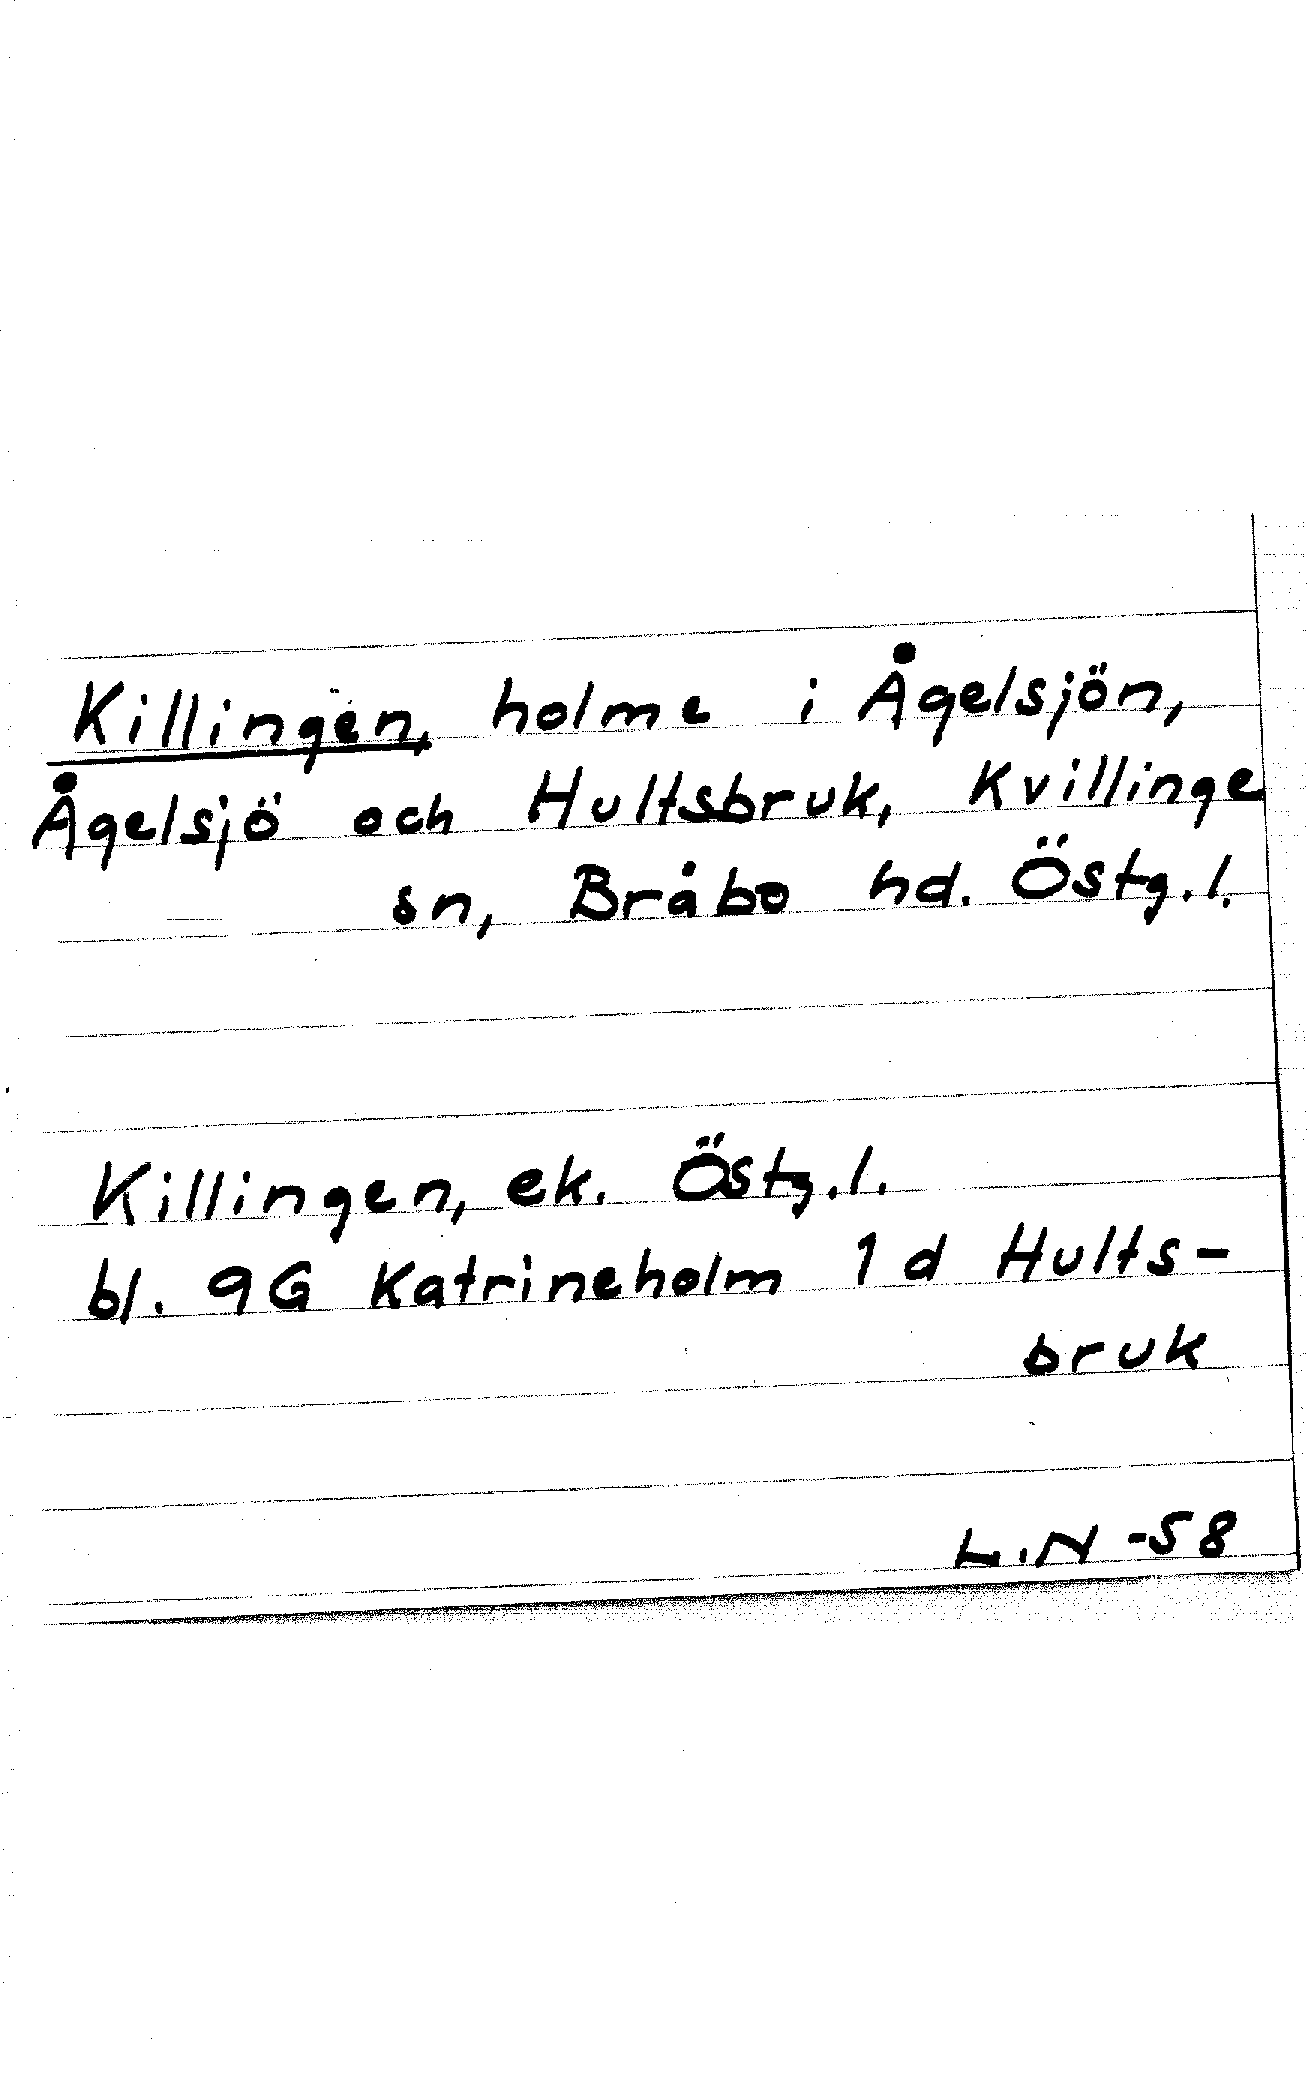 Killingen, holme i Ågelsjön,
Ågelsjö och Hultsbruk, Kvillinge
sn, Bråbo hd. Östg.l.
Killingen, ek. Östg.l.
bl. 9G Katrineholm 1 d Hults-
bruk
L.N -58